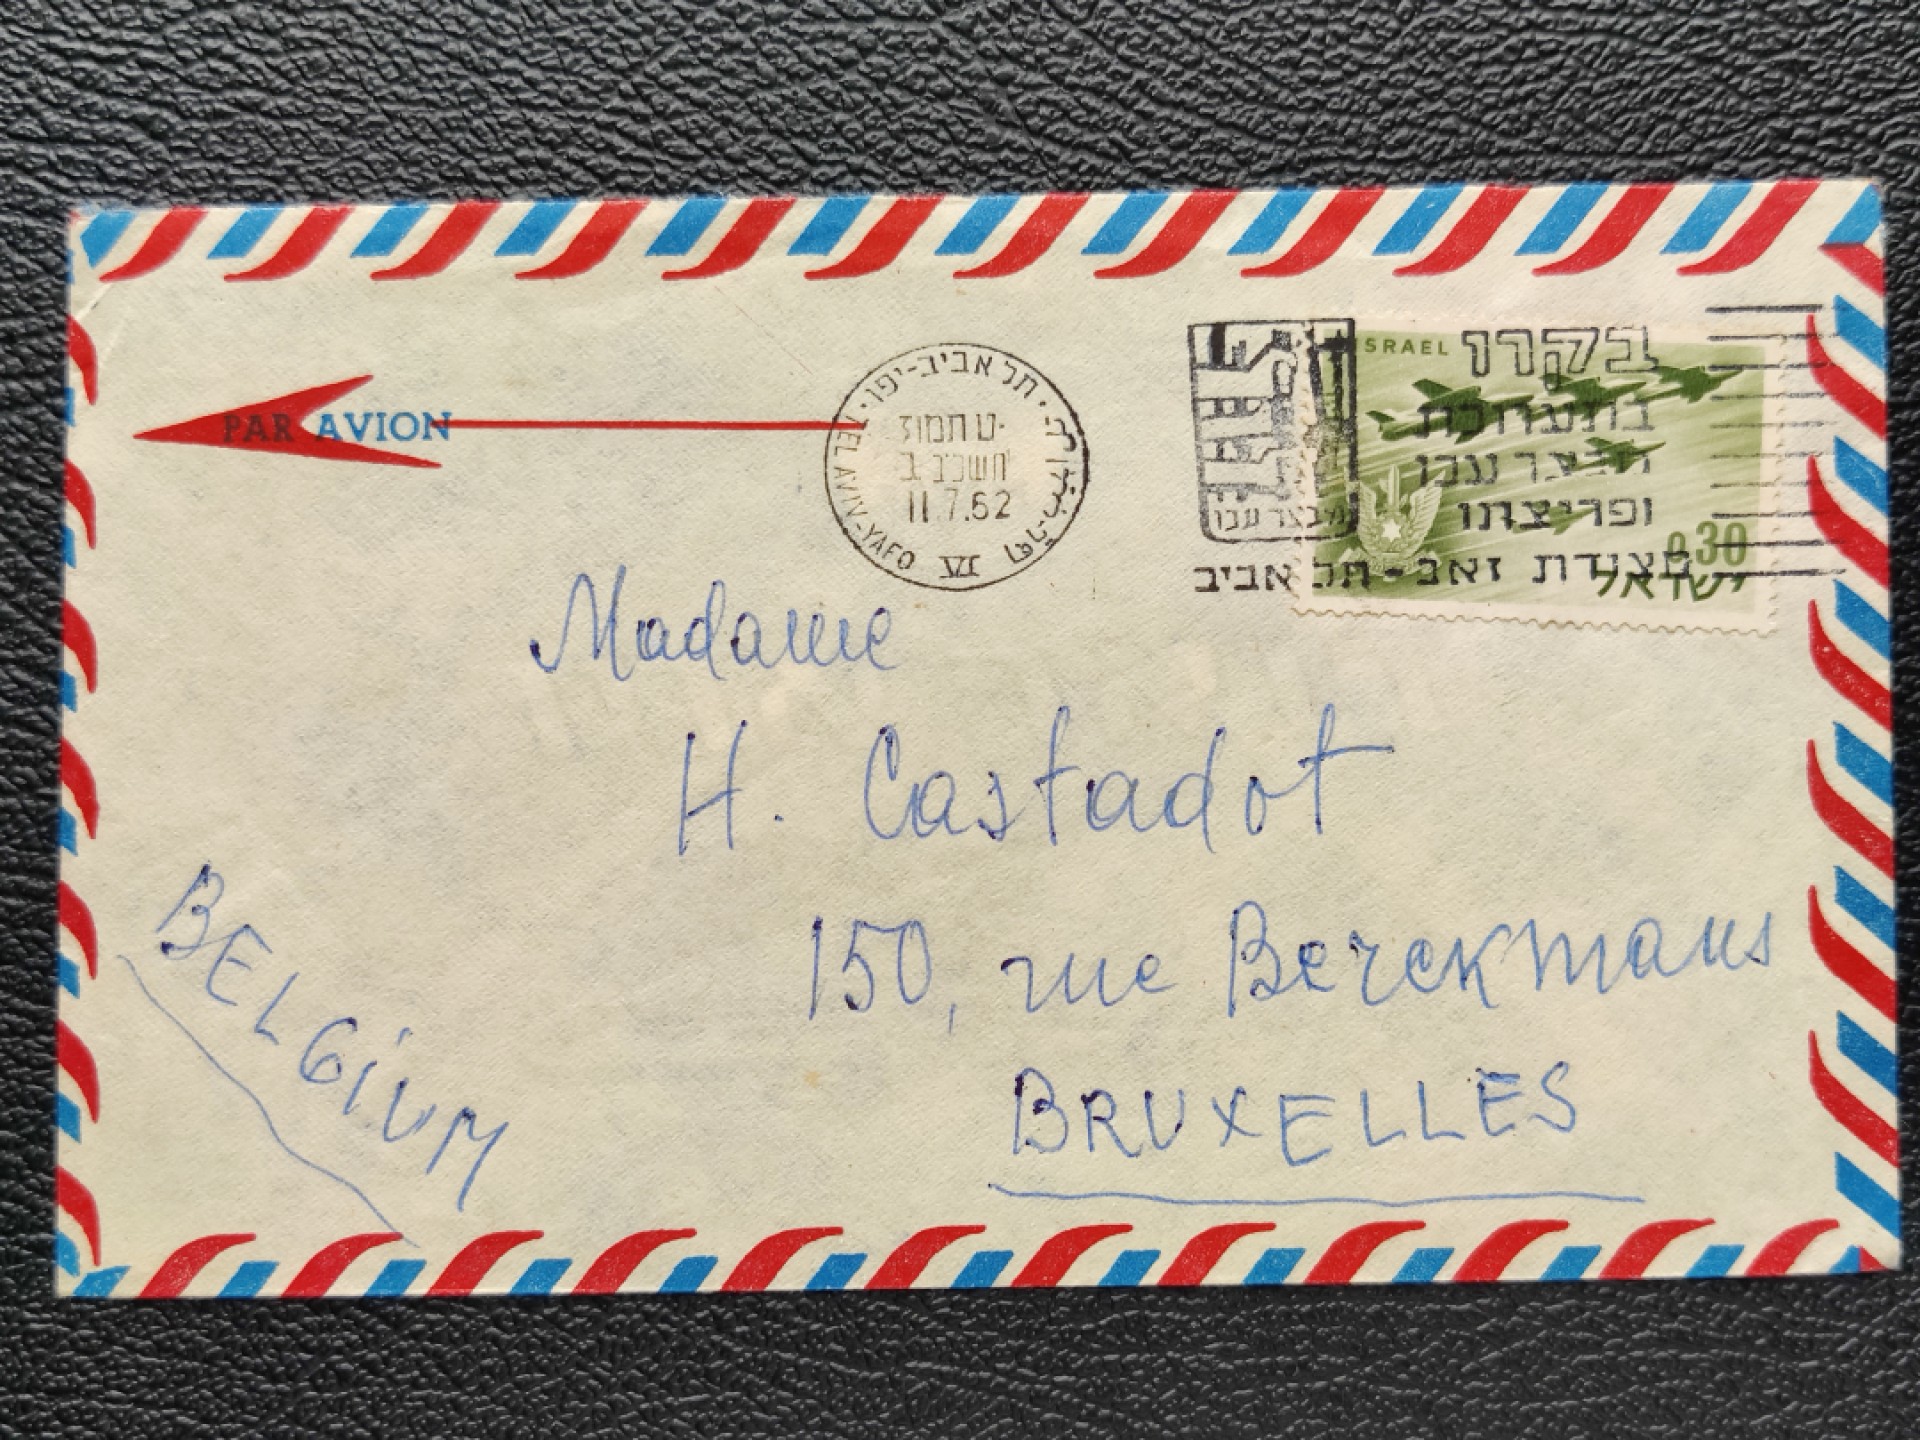 PAR AVION
תל אביב-יפו
TEL AVIV-YAFO
ט' תמוז
תשכ"ב
11.7.62
VI
ISRAEL
0.30
ישראל
בקרו
בתערוכת
מבצר עכו
ופריצתו
מצודת זאב - תל אביב
מבצר עכו
Madame
H. Castadot
150, rue Berckmans
BRUXELLES
BELGIUM